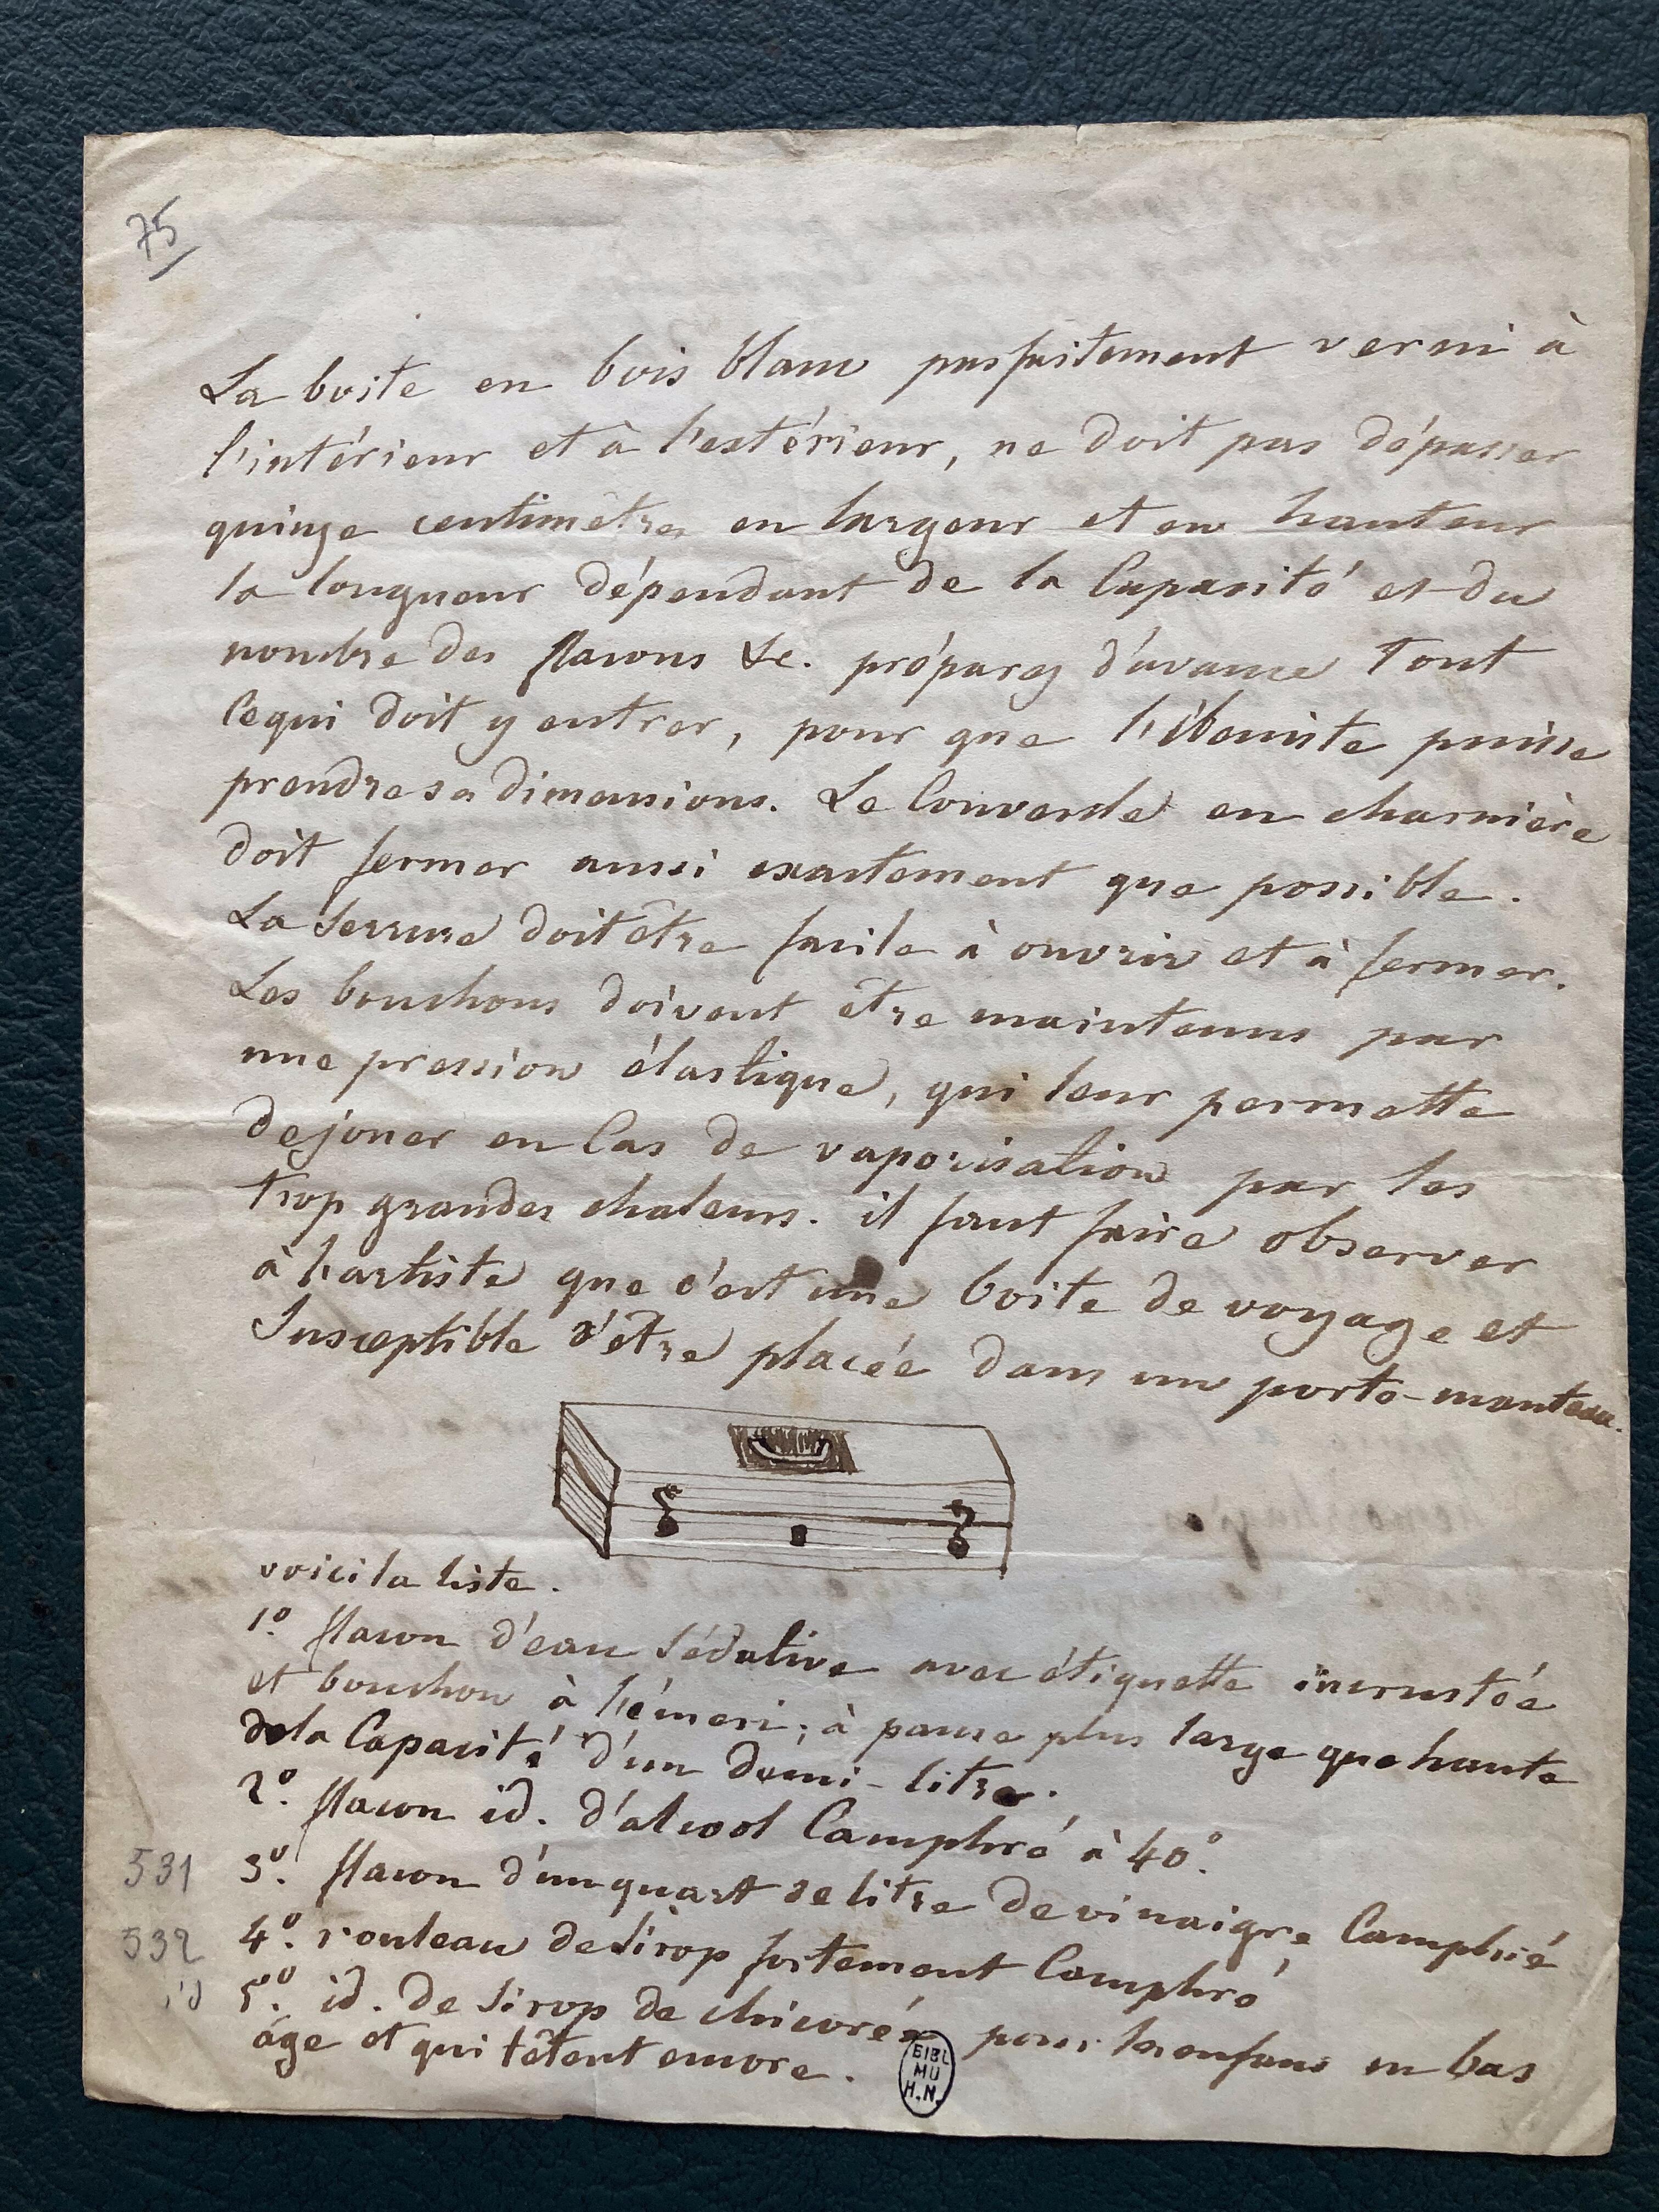 75
La boite en bois blanc parfaitement verni à
l'intérieur et à l'extérieur, ne doit pas dépasser
quinze centimètres en largeur et en hauteur
la longueur dépendant de la Capacité et du
nombre des flacons &c. préparez d'avance tout
Cequi doit y entrer, pour que l'ébéniste puisse
prendre ses dimensions. Le Couvercle en charnière
doit fermer aussi exactement que possible.
La Serrure doit être facile à ouvrir et à fermer.
Les bouchons doivent être maintenus par
une pression élastique, qui leur permette
de jouer en Cas de vaporisation par les
trop grandes chaleurs. il faut faire observer
à l'artiste que c'est une boite de voyage et
Susceptible d'être placée dans un porte-manteau.
voici la liste.
1º. flacon d'eau Sédative avec étiquette incrustée
et bouchon à l'émeri; à panse plus large que haute
de la Capacité d'un demi-litre.
2º. flacon id. d'alcool Camphré à 40º.
531 3º. flacon d'un quart de litre de vinaigre Camphré
532 4º. rouleau de Sirop fortement Camphré
id 5º. id. de Sirop de chicorée pour les enfans en bas
âge et qui têtent encore.
BIBL
MU
H.N.